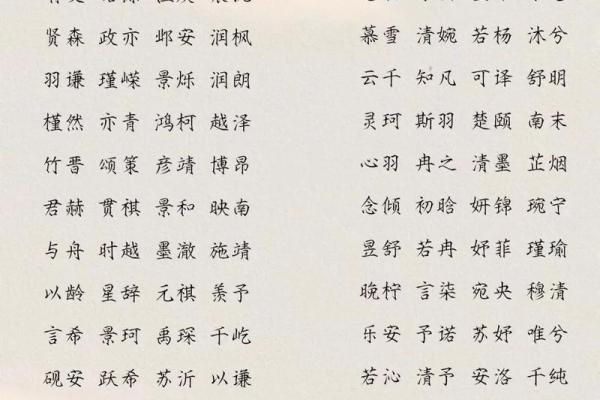 贤森 政亦 邺安 润枫
羽谦 瑾嵘 景烁 润朗
槿然 亦青 鸿柯 越泽
竹晋 颂策 彦靖 博昂
君赫 贯祺 景和 映南
与舟 时越 墨澈 施靖
以龄 星辞 元祺 羡予
言希 景珂 禹琛 千屹
砚安 跃希 苏沂 以谦
慕雪 清婉 若杨 沐兮
云千 知凡 可译 舒明
灵珂 斯羽 楚颐 南末
心羽 冉之 清墨 芷烟
念倾 初晗 妍锦 琬宁
昱舒 若冉 妤菲 瑾瑜
晚柠 言柒 宛央 穆清
乐安 予诺 苏妤 唯兮
若沁 清予 安洛 千纯